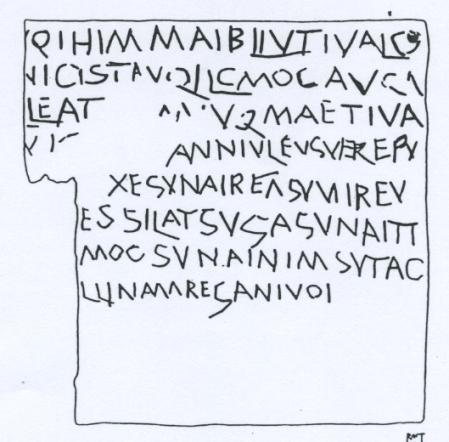 QIHIMMAIBLIIVTIVALCS
NICISTAVQILLCMOCAVCA
LEAT VQMAETIVA
ANNIVLEVSVEREPV
XESVNAIREASVVIREV
ESSILATSVGASVNAITI
MOCSVNAINIMSVTAC
LLINAMREGANIVOI